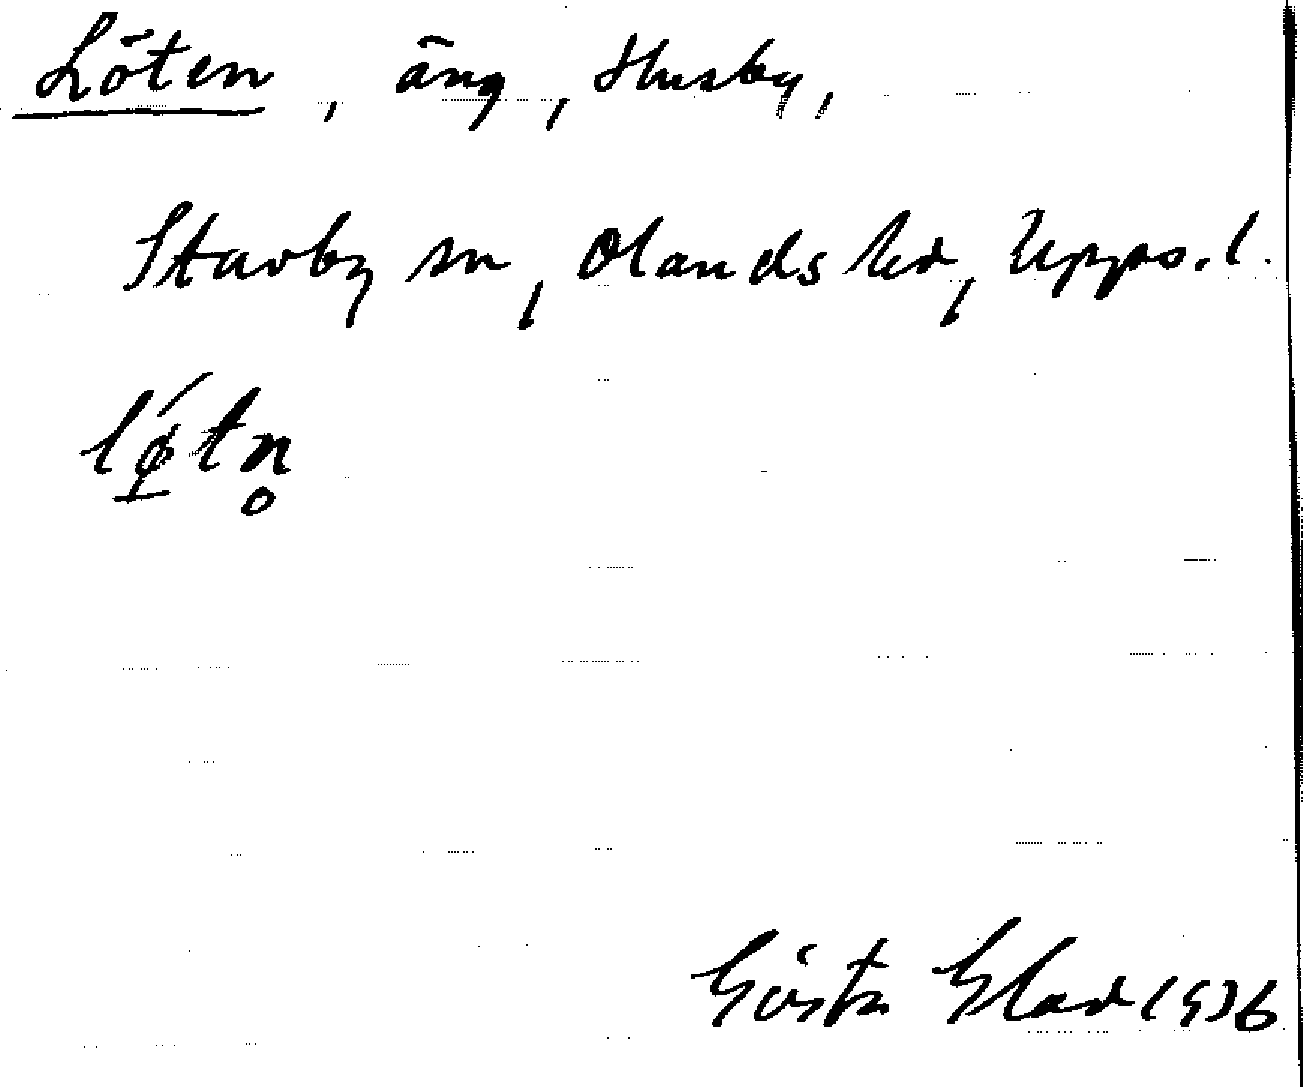 Löten, äng, Husby,
Stavby sn, Olands hd, Upps. l.
lǿ̱tn̥
Gösta Glad 1936